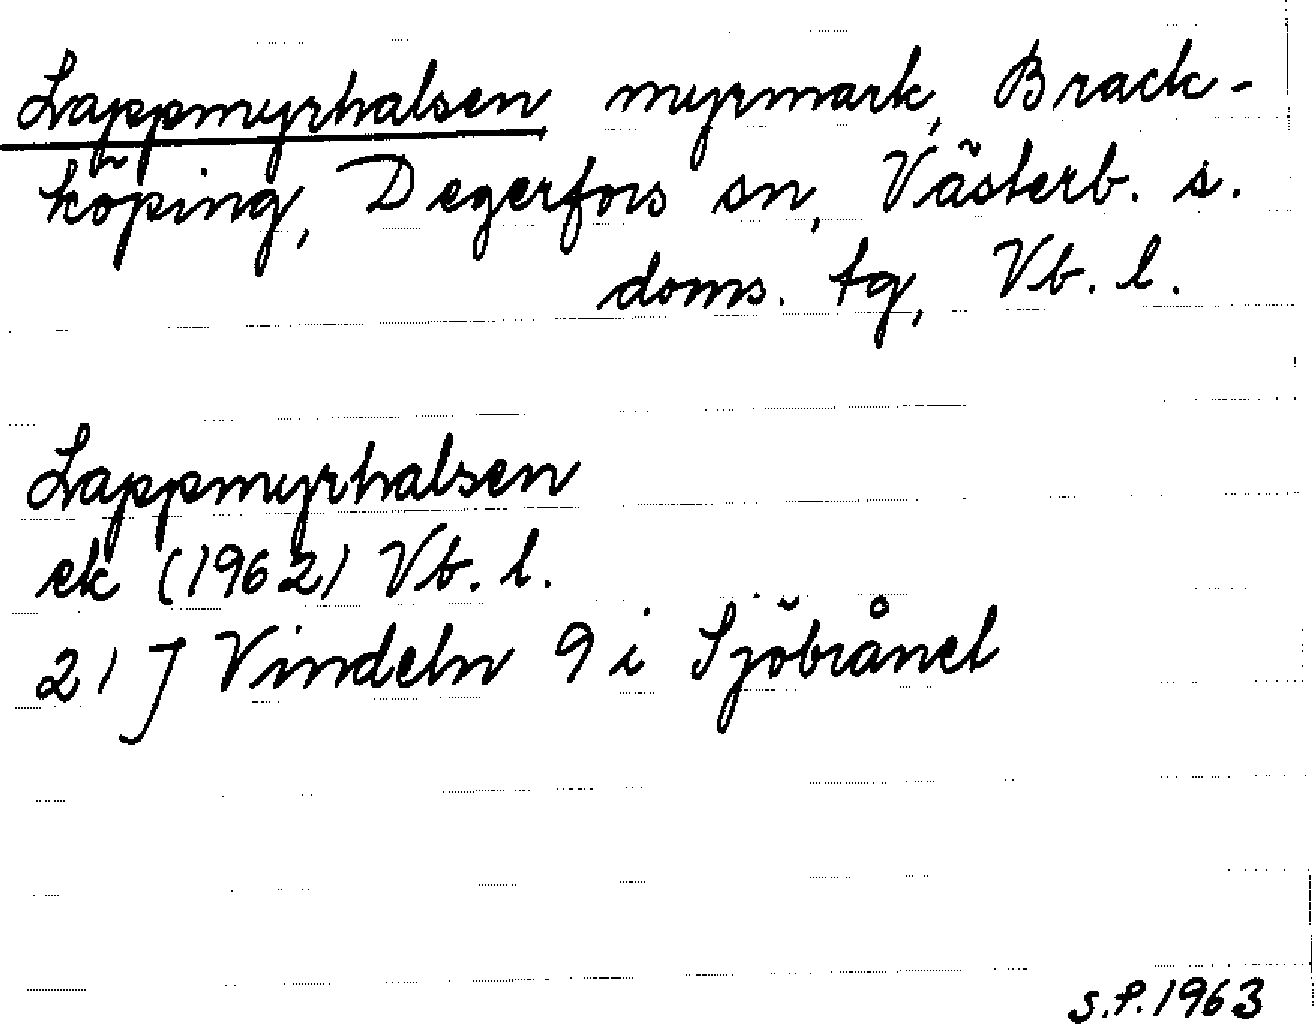 Lappmyrhalsen myrmark, Brack-
köping, Degerfors sn, Västerb. s.
doms. tg, Vb. l.
Lappmyrhalsen
ek (1962) Vb. l.
21 J Vindeln 9 i Sjöbrånet
S.P. 1963